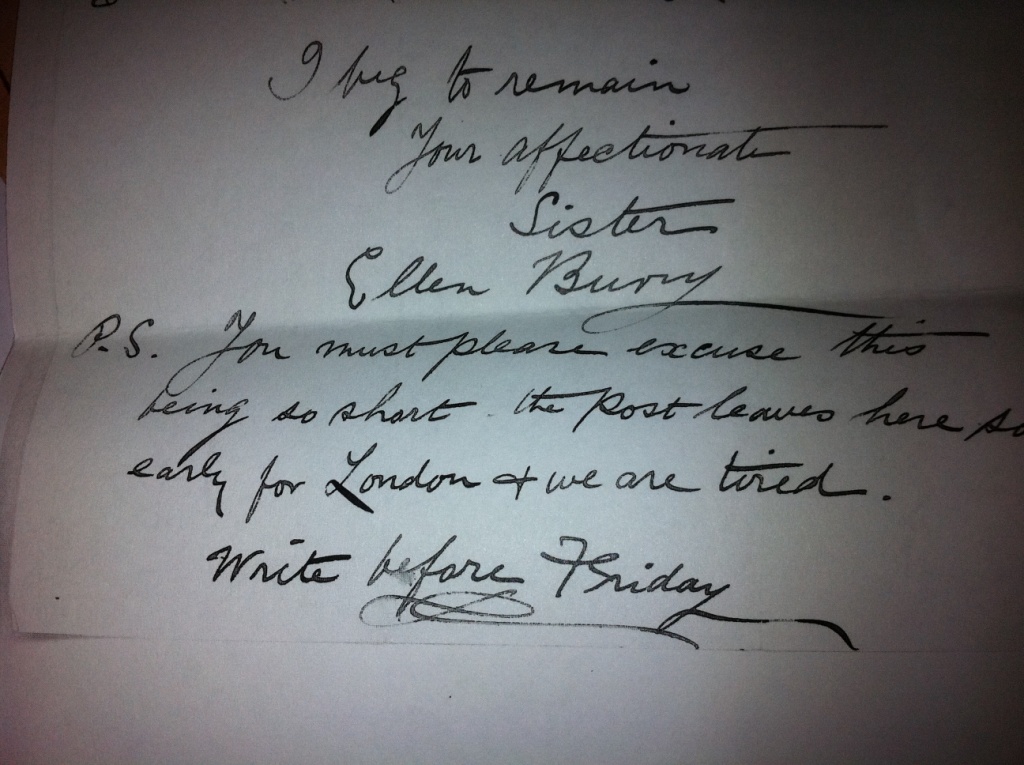 I beg to remain
Your affectionate
Sister
Ellen Bury
P.S. You must please excuse this
being so short. the post leaves here so
early for London & we are tired.
Write before Friday